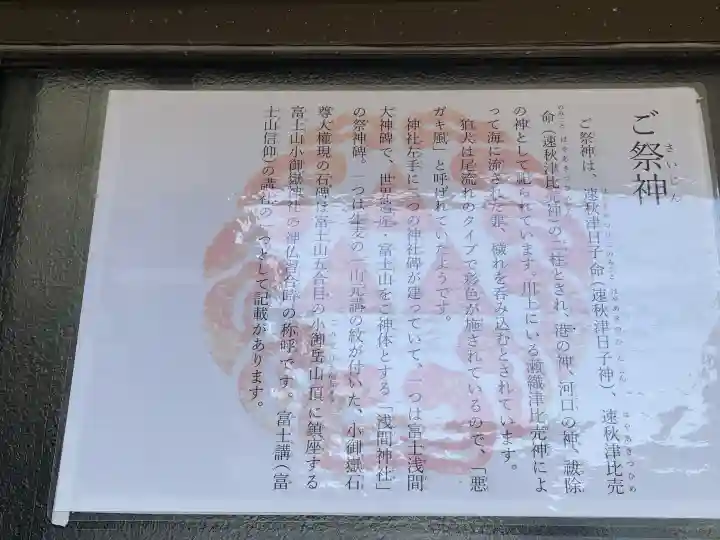 ご祭神
さいじん
ご祭神は、速秋津日子命(速秋津日子神)、速秋津比売
命(速秋津比売神)の二柱とされ、港の神、河口の神、祓除
の神として祀られています。川上にいる瀬織津比売神によ
って海に流された罪、穢れを呑み込むとされています。
狛犬は尾流れのタイプで彩色が施されているので、「悪
ガキ風」と呼ばれていたようです。
神社左手に二つの神社碑が建っていて、一つは富士浅間
大神碑で、世界遺産・富士山をご神体とする「浅間神社」
の祭神碑。一つは生麦の一山元講の紋が付いた、小御嶽石
尊大権現の石碑は富士山五合目の小御岳山頂に鎮座する
富士山小御嶽神社の神仏習合時の称呼です。富士講(富
士山信仰)の講社の一つとして記載があります。